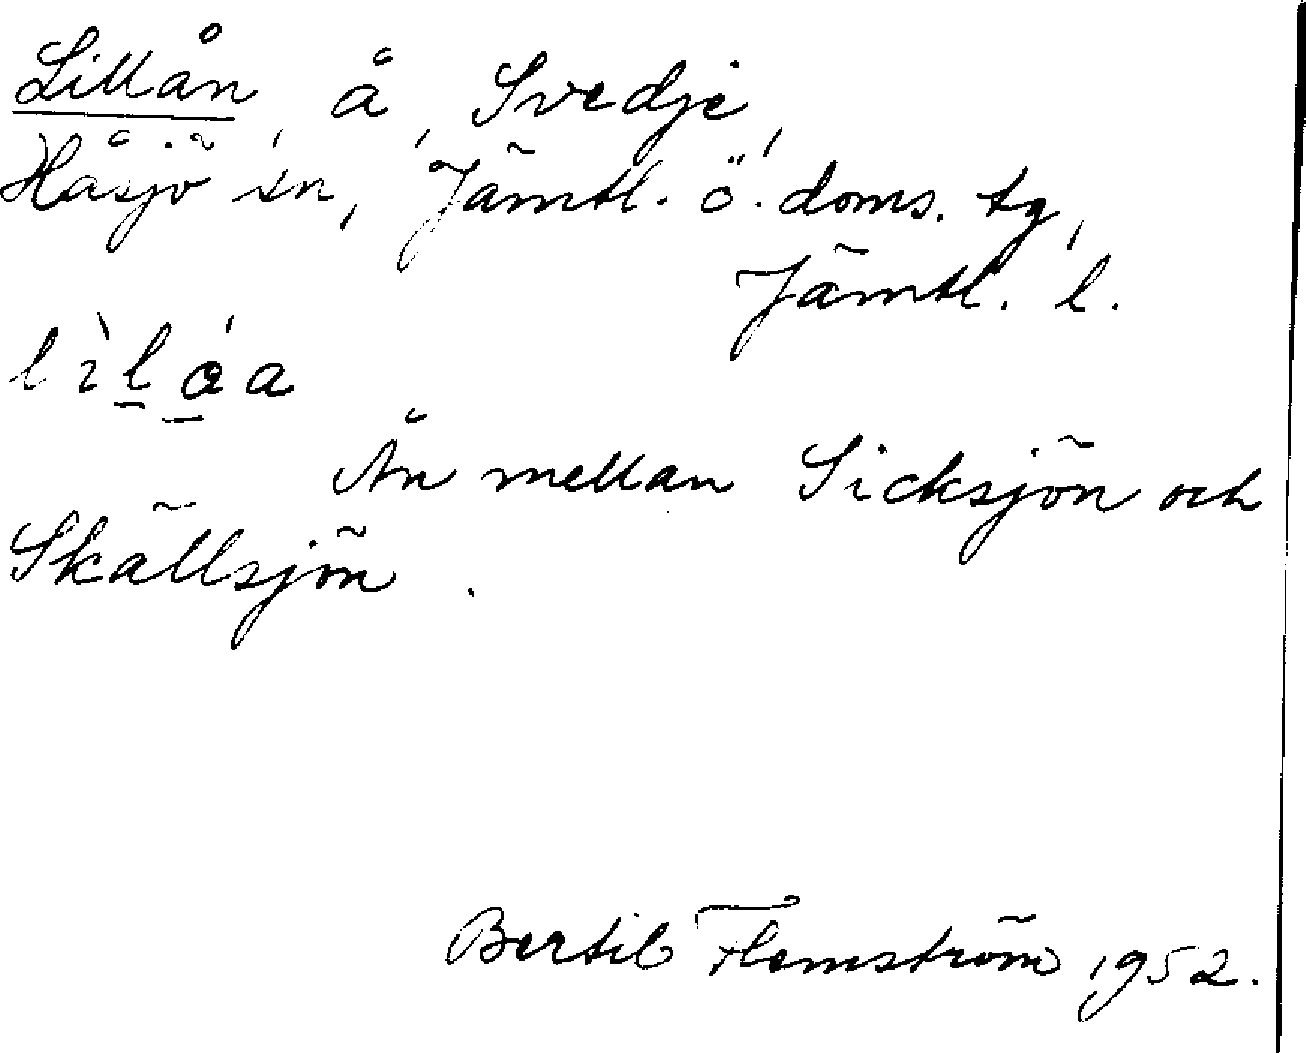 Lillån, å, Svedje,
Håsjö sn, Jämtl. ö. doms. tg,
Jämtl. l.
lìl̲ǻ̲a
Ån mellan Sicksjön och
Skällsjön.
Bertil Flemström 1952.